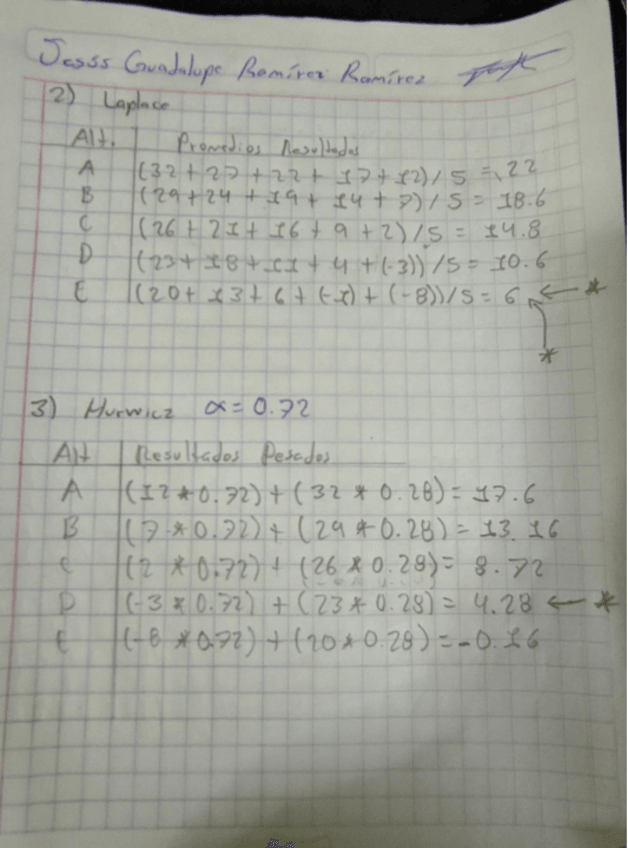 Jesús Guadalupe Ramírez Ramírez
2) Laplace
Alt. Promedios Resultados
A (32 + 27 + 22 + 17 + 12) / 5 = 22
B (29 + 24 + 19 + 14 + 7) / 5 = 18.6
C (26 + 21 + 16 + 9 + 2) / 5 = 14.8
D (23 + 18 + 11 + 4 + (-3)) / 5 = 10.6
E (20 + 13 + 6 + (-1) + (-8)) / 5 = 6 ← *
*
3) Hurwicz α = 0.72
Alt Resultados Pesados
A (12 * 0.72) + (32 * 0.28) = 17.6
B (7 * 0.72) + (29 * 0.28) = 13.16
C (2 * 0.72) + (26 * 0.28) = 8.72
D (-3 * 0.72) + (23 * 0.28) = 4.28 ← *
E (-8 * 0.72) + (20 * 0.28) = -0.16